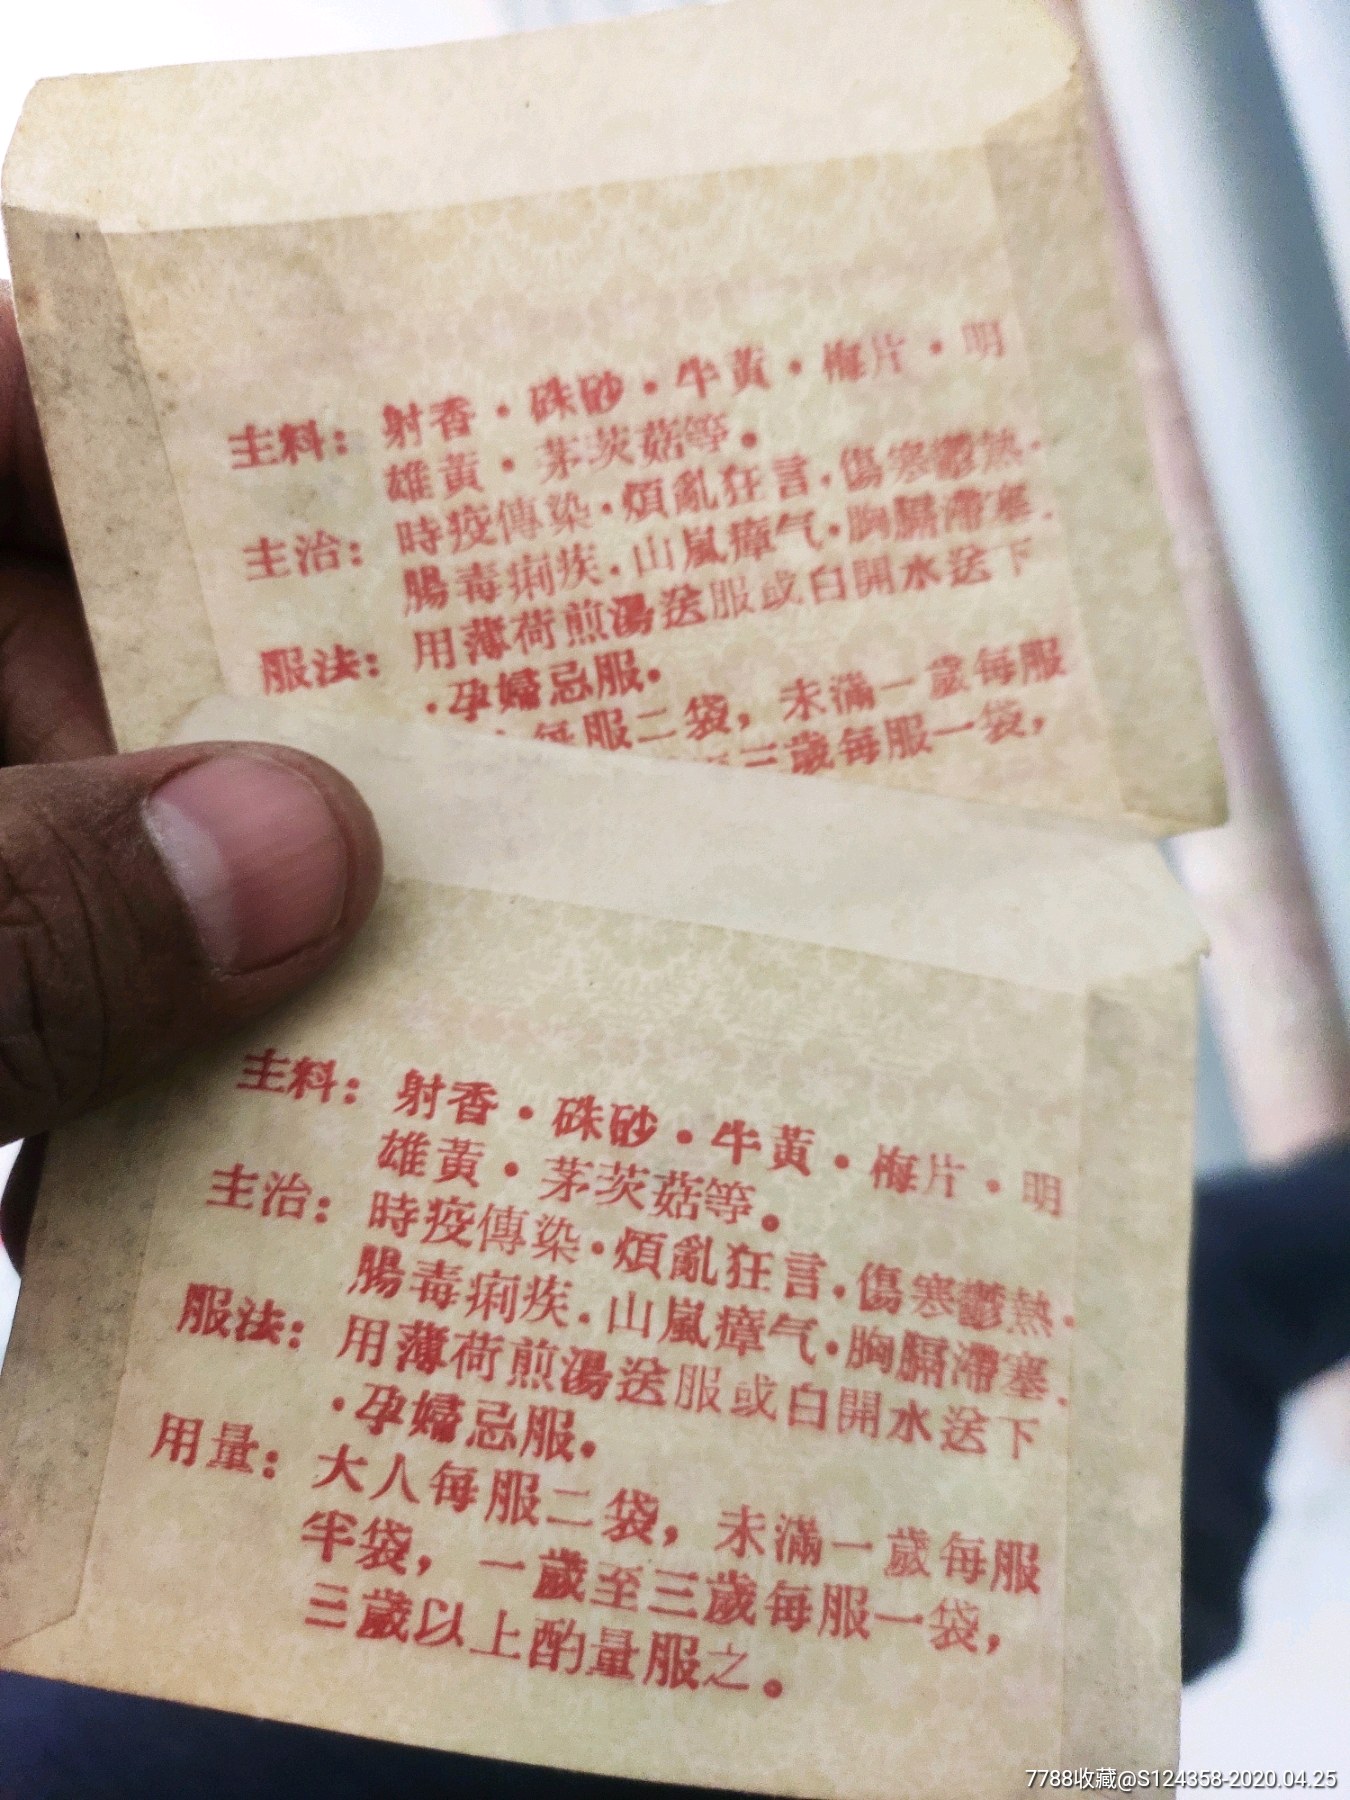 主料：射香·硃砂·牛黃·梅片·明
雄黃·茅茨菇等。
主治：時疫傳染·煩亂狂言·傷寒鬱熱·
腸毒痢疾·山嵐瘴气·胸膈滯塞·
服法：用薄荷煎湯送服或白開水送下
·孕婦忌服。
每服二袋，未滿一歲每服
三歲每服一袋，
主料：射香·硃砂·牛黃·梅片·明
雄黃·茅茨菇等。
主治：時疫傳染·煩亂狂言·傷寒鬱熱·
腸毒痢疾·山嵐瘴气·胸膈滯塞·
服法：用薄荷煎湯送服或白開水送下
·孕婦忌服。
用量：大人每服二袋，未滿一歲每服
半袋，一歲至三歲每服一袋，
三歲以上酌量服之。
7788收藏@S124358-2020.04.25